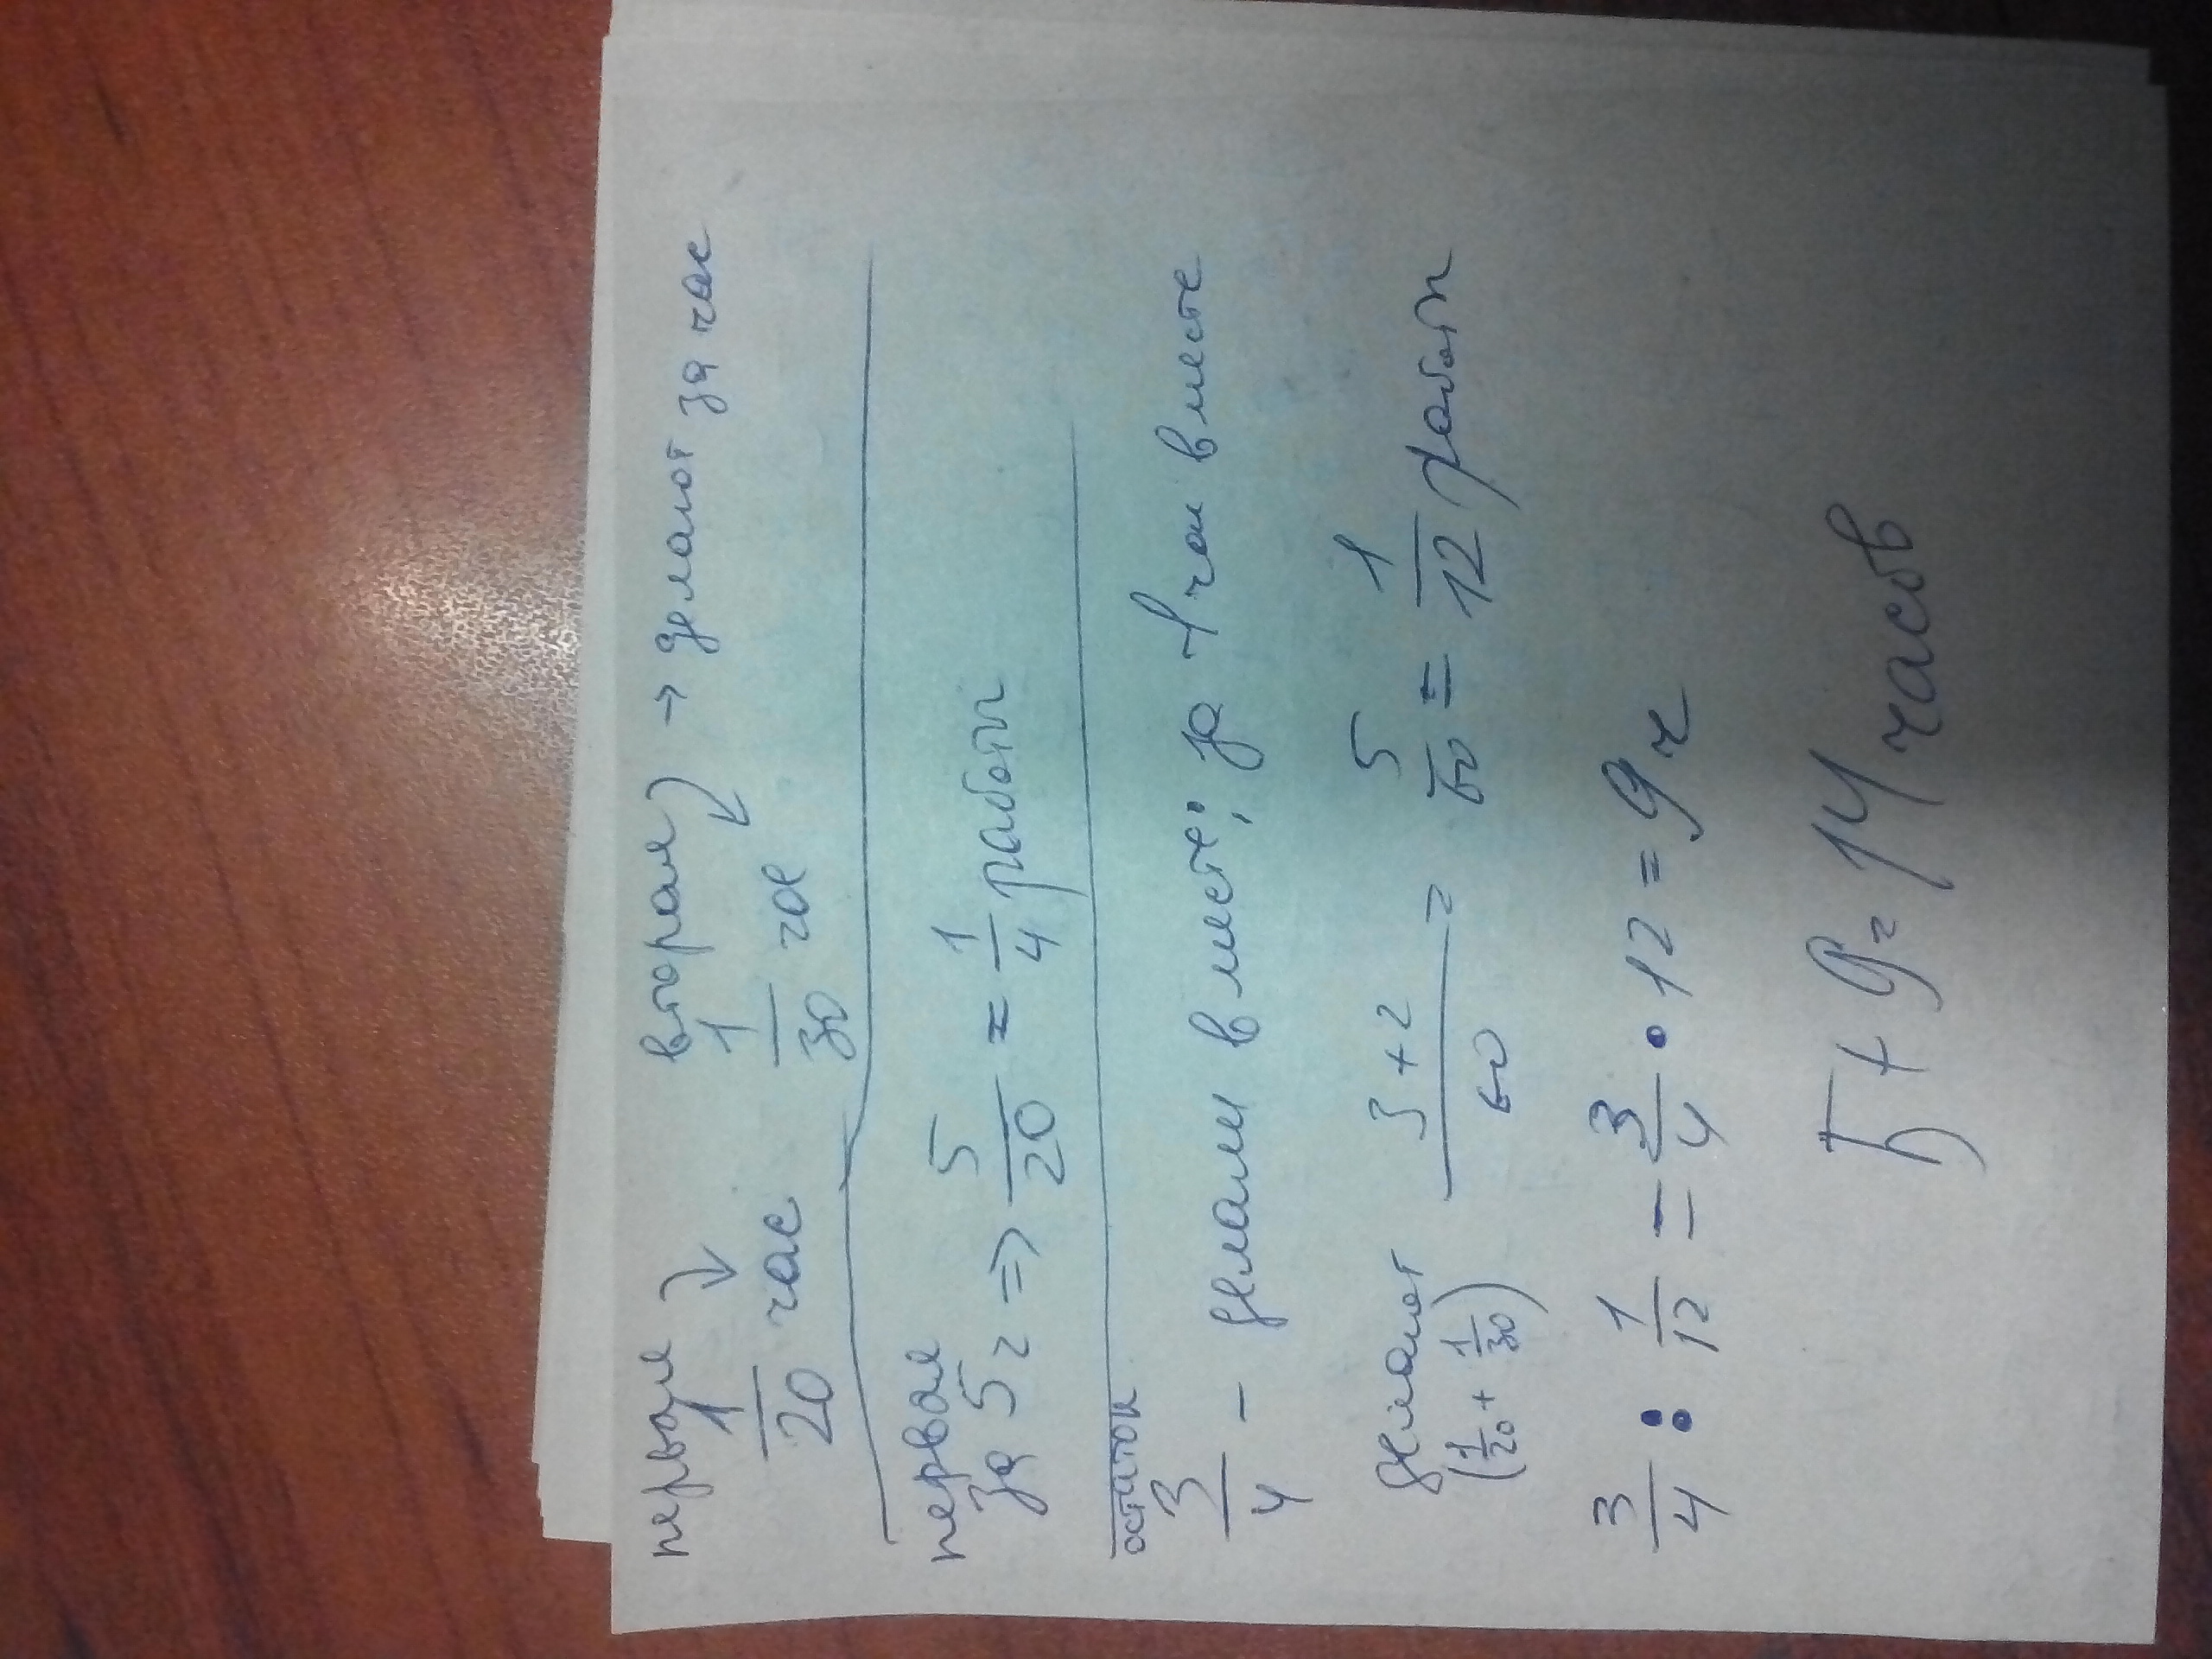 первая вторая → делают за час
1/20 час 1/30 час
первая
за 5 ч => 5/20 = 1/4 работы
остаток
3/4 - делали вместе; за 1 час вместе
делают (1/20 + 1/30) 3+2/60 = 5/60 = 1/12 работы
3/4 : 1/12 = 3/4 · 12 = 9 ч
5 + 9 = 14 часов